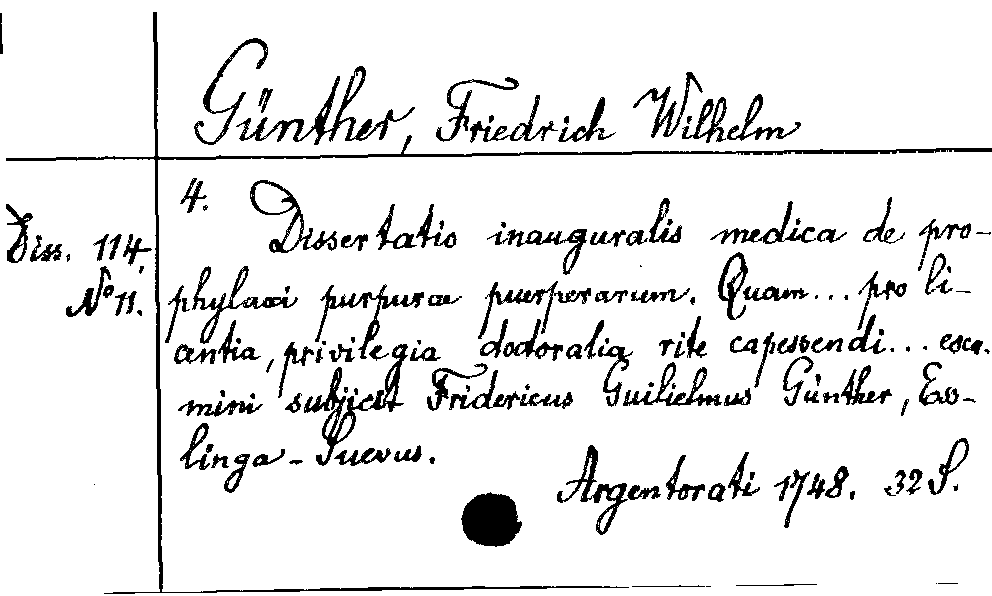 Günther, Friedrich Wilhelm
Diss. 114,
No 11.
4.
Dissertatio inauguralis medica de pro-
phylaxi purpurae puerperarum. Quam... pro li-
centia, privilegia doctoralia rite capessendi... exa-
mini subjicit Fridericus Guilielmus Günther, Ess-
linga-Suevus.
Argentorati 1748. 32 S.